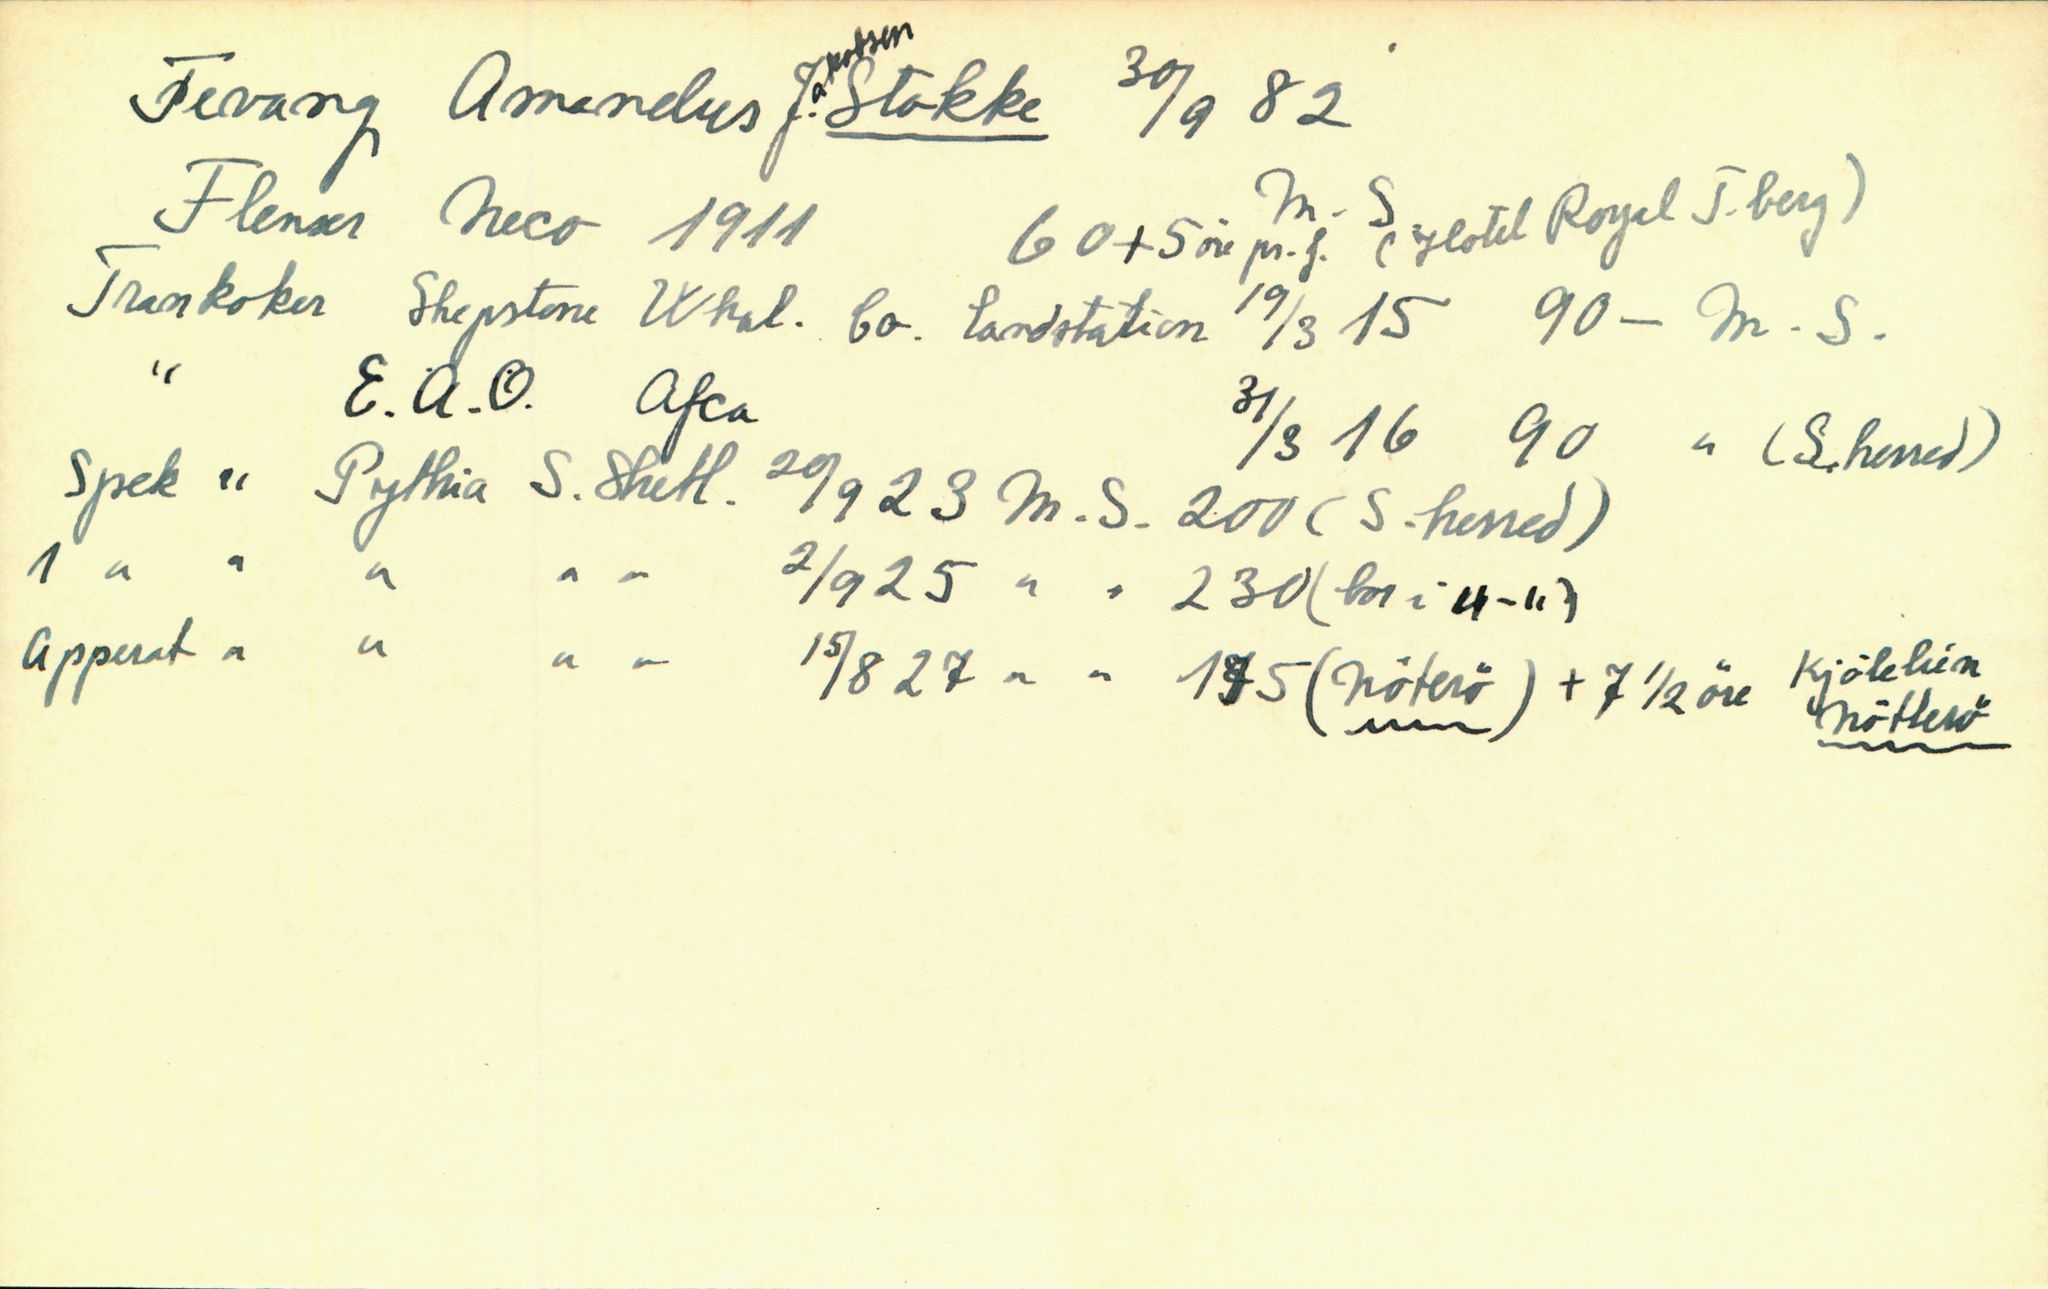 Fevang Amandus J.akobsen Stokke 30/9 82
Flenser Neco 1911 60+5 öre pr. f. M.S. (Hotel Royal T.berg)
Trankoker Shepstone Whal. Co. Landstation 19/3 15 90 – M.S.
" E.A.O. Afca 31/3 16 90 " (S.herred)
Spek " Pythia S. Shetl. 20/9 23 M.S. 200 (S.herred)
1 " " " " " 2/9 25 " " 230 (bor i "-")
Apperat " " " " 15/8 27 " " 175 (Nöterö) + 7 1/2 öre
Nötterö